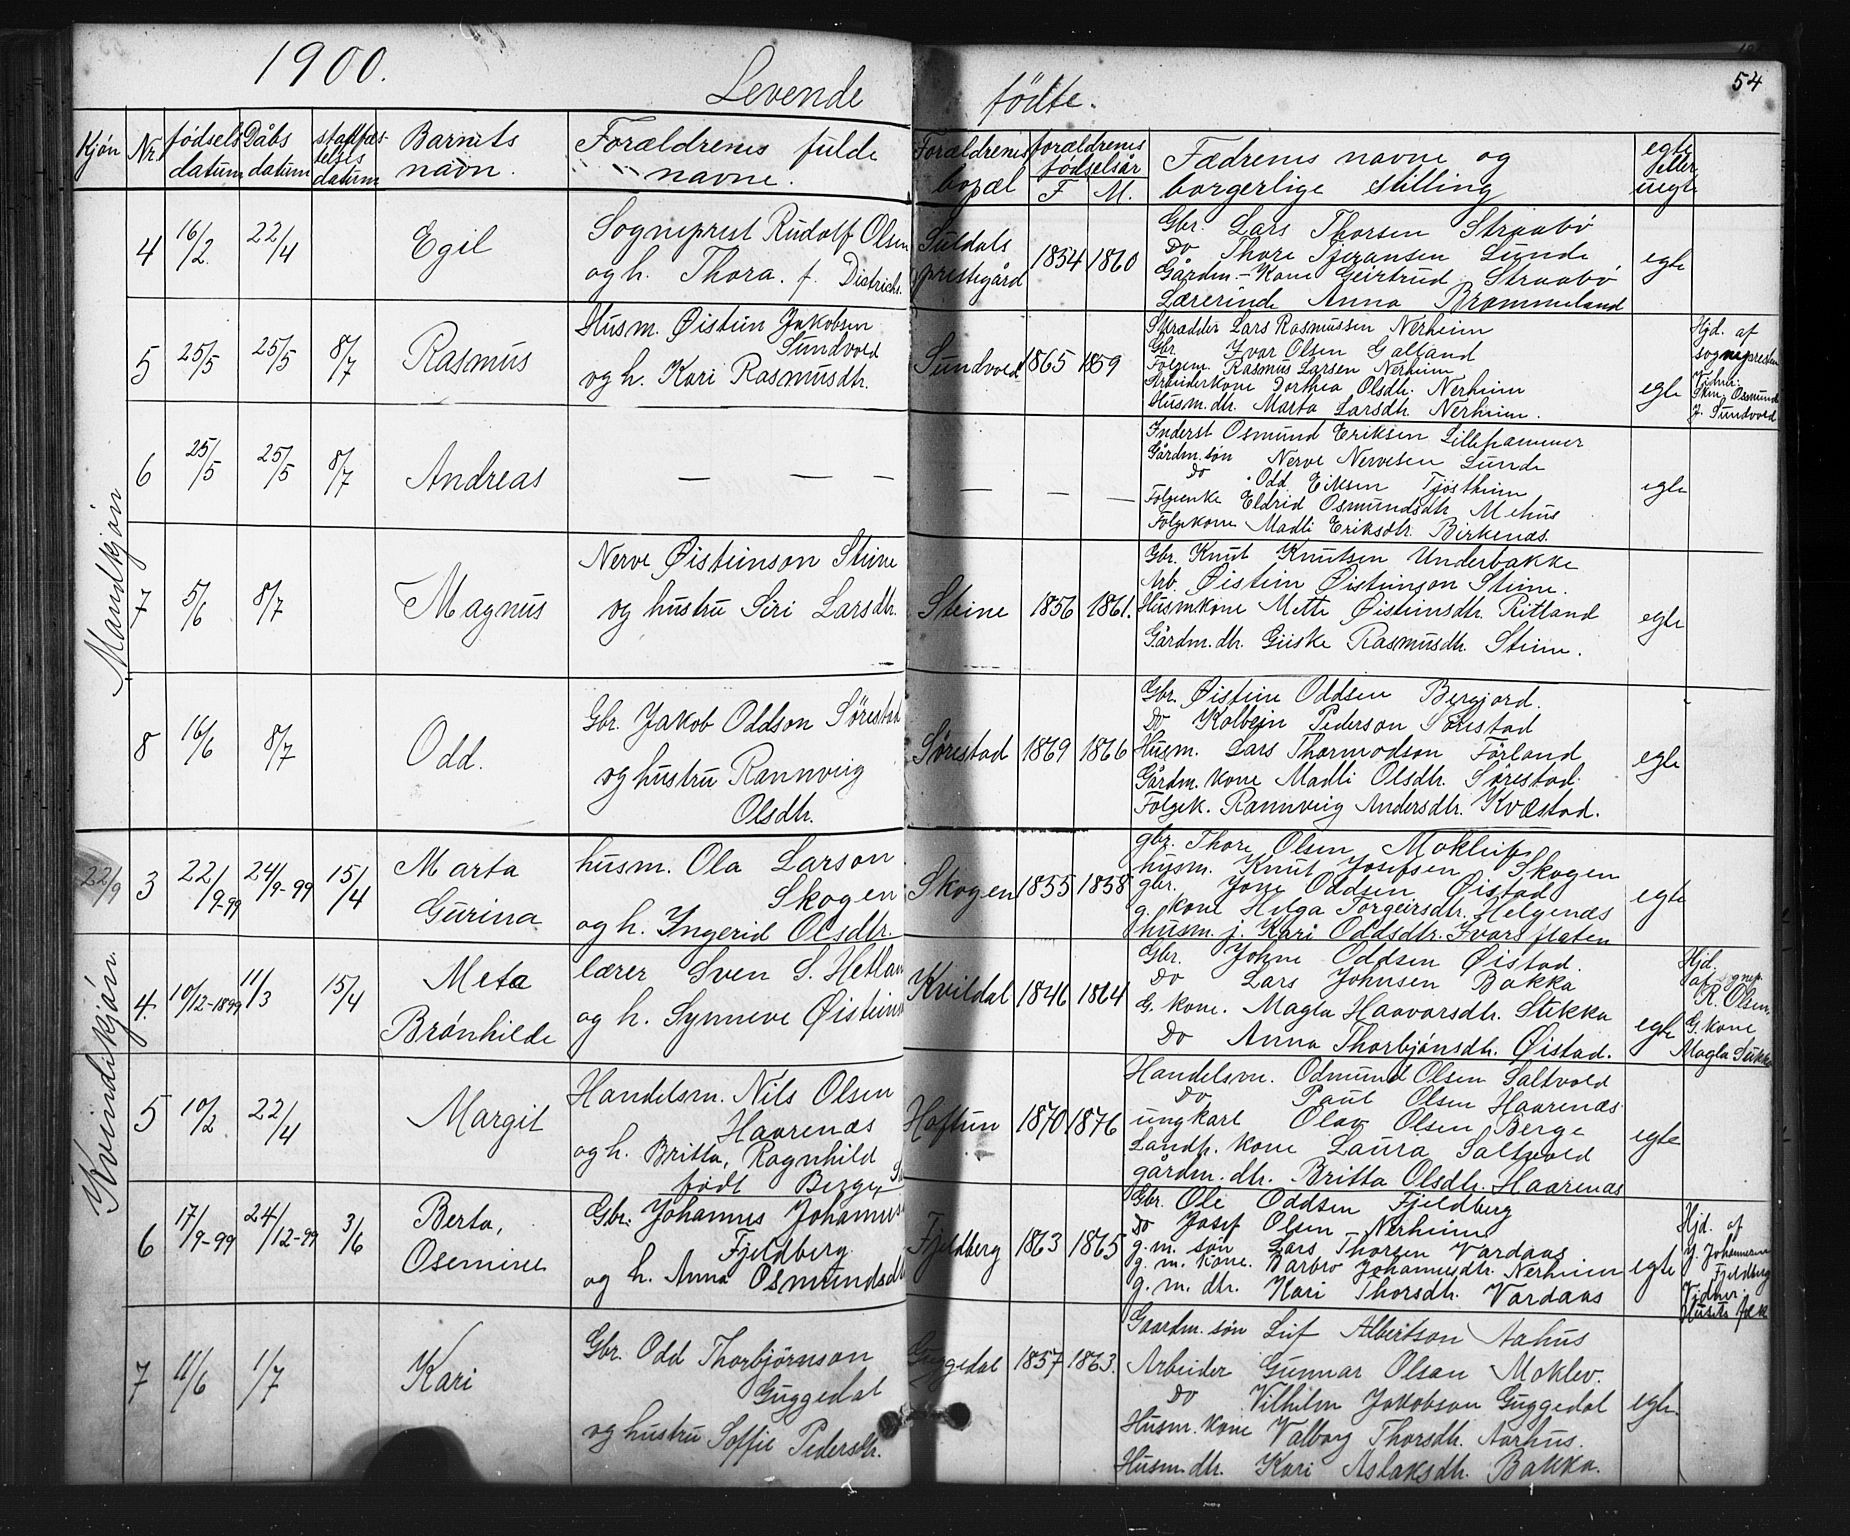 1900.
Levende fødte.
54
Kjøn Nr. fødsels datum Dåbs datum stadfæstelses datum Barnets navn. Forældrenes fulde navne. Forældrenes bopæl forældrenes fødselsår F M. Fædrenes navne og borgerlige stilling egte eller uegte
Mandkjøn
4 16/2 22/4 Egil
Sogneprest Rudolf Olsen
og h. Thora. f. Districhs.
Suldals prestegård 1854 1860
Gbr. Lars Thorsen Straabø
Do Thore Tjeransen Lunde
Gårdm-Kone Geirtrud Straabø
Lærerinde Anna Brommeland
egte
5 25/5 25/5 8/7 Rasmus
Husm. Øistein Jakobsen
Sundvold
og h. Kari Rasmusdtr.
Sundvold 1865 1859
Skrædder Lars Rasmussen Nerheim
Gbr. Ivar Olsen Galland
Følgem. Rasmus Larsen Nerheim
Arbeiderkone Dorthea Olsdtr. Nerheim
Husm. dtr. Marta Larsdtr. Nerheim.
egte
Hjd. af
sognepresten
Vidner:
Osmund
J. Sundvold
6 25/5 25/5 8/7 Andreas
— — —
— — —
Inderst Osmund Eriksen Lillehammer
Gårdm. søn Nerve Nervesen Lunde
do Odd Eiksen Tjøstheim
Følgeenke Eldrid Osmundsdtr Mehus
Følgekone Madli Eriksdtr. Birkenæs.
egte
7 5/6 8/7 Magnus
Nerve Øisteinson Steine
og hustru Siri Larsdtr.
Steine 1856 1861.
Gbr. Knut Knutsen Underbakke
Arb. Øistein Øisteinson Steine.
Husmkone Mette Øisteinsdtr. Ritland
Gårdm. dtr. Giske Rasmusdtr. Steine.
egte
8 16/6 8/7 Odd.
Gbr. Jakob Oddson Sørestad
og hustru Rannveig
Olsdtr.
Sørestad 1869 1866
Gbr. Øistein Oddsen Bergjord.
Do Kolbein Pederson Sørestad
Husm. Lars Thormodson Førland
Gårdm. kone Madli Olsdtr. Sørestad.
Følgek. Rannveig Andersdtr. Kvæstad.
egte
Kvindekjøn
22/9 3 22/9-99 24/9-99 15/4 Marta
Gurina
husm. Ola Larson
Skogen
og h. Ingerid Olsdtr.
Skogen 1855 1858
gbr. Thore Olsen Mokleif
husm. Knut Josefsen Skogen
gbr. Jone Oddsen Øistad
g. kone Helga Torgeirsdtr. Helgenæs
husm. j. Kari Oddsdtr. Ivarsflaten
egte
4. 10/12-1899 11/3 15/4 Meta
Brønhilde
lærer Sven S. Hetlan
og h. Synneve Øisteins
Kvildal 1846 1864
Gbr. Johne Oddsen Øistad.
Do Lars Johnsen Bakka
G. kone. Magla Haavarsdtr. Stekka
Do Anna Thorbjønsdtr. Øistad.
egte
Hjd.
af sognep.
R. Olsen.
G. kone
Magla Stekka
5 10/2 22/4 Margit
Handelsm. Nils Olsen
Haarenæs
og h. Britta, Ragnhild
født Berge
Haftun 1870 1876
Handelsm. Odmund Olsen Saltvold
Do Paul Olsen Haarenæs.
ungkarl Olav Olsen Berge
Landh. kone Laura Saltvold
gårdm. dtr. Britta Olsdtr. Haarenæs
egte
6 17/9-99 24/12-99 3/6 Berta,
Osemine
Gbr. Johannes Johannes
Fjeldberg.
og h. Anna Osmundsdtr
Fjeldberg 1863 1865
Gbr. Ole Oddsen Fjeldberg
Do Josef Olsen Nerheim
g. m. søn Lars Thorsen Vardaas
g. m. kone. Barbro Johannesdtr. Nerheim
g. m. dtr. Kari Thorsdtr. Vardaas
egte
Hjd. af
J. Johannesen
Fjeldberg
Vidner:
Husets folk
7 11/6 1/7 Kari
Gbr. Odd Thorbjørnson
Guggedal
og hustru Soffie Pedersdtr.
Guggedal 1857 1863.
Gaardm. søn Leif Albertson Aahus
Arbeider Gunnar Olsen Moklev.
Do Vilhelm Jakobson Guggedal
Husm. kone Valborg Thorsdtr. Aarhus.
Husm. dtr. Kari Aslaksdtr. Bakka.
egte.